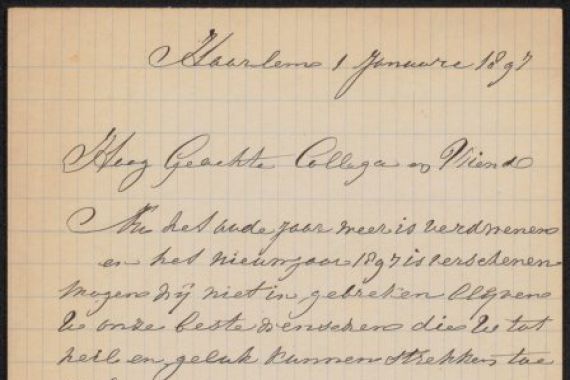 Haarlem 1 Januare 1897
Hoog Geachte Collega en Vriend
Nu het oude jaar weer is verdwenen
en het nieuwjaar 1897 is verschenen
mogen wij niet in gebreken blijven
U onze beste wenschen die U tot
heil en geluk kunnen strekken toe